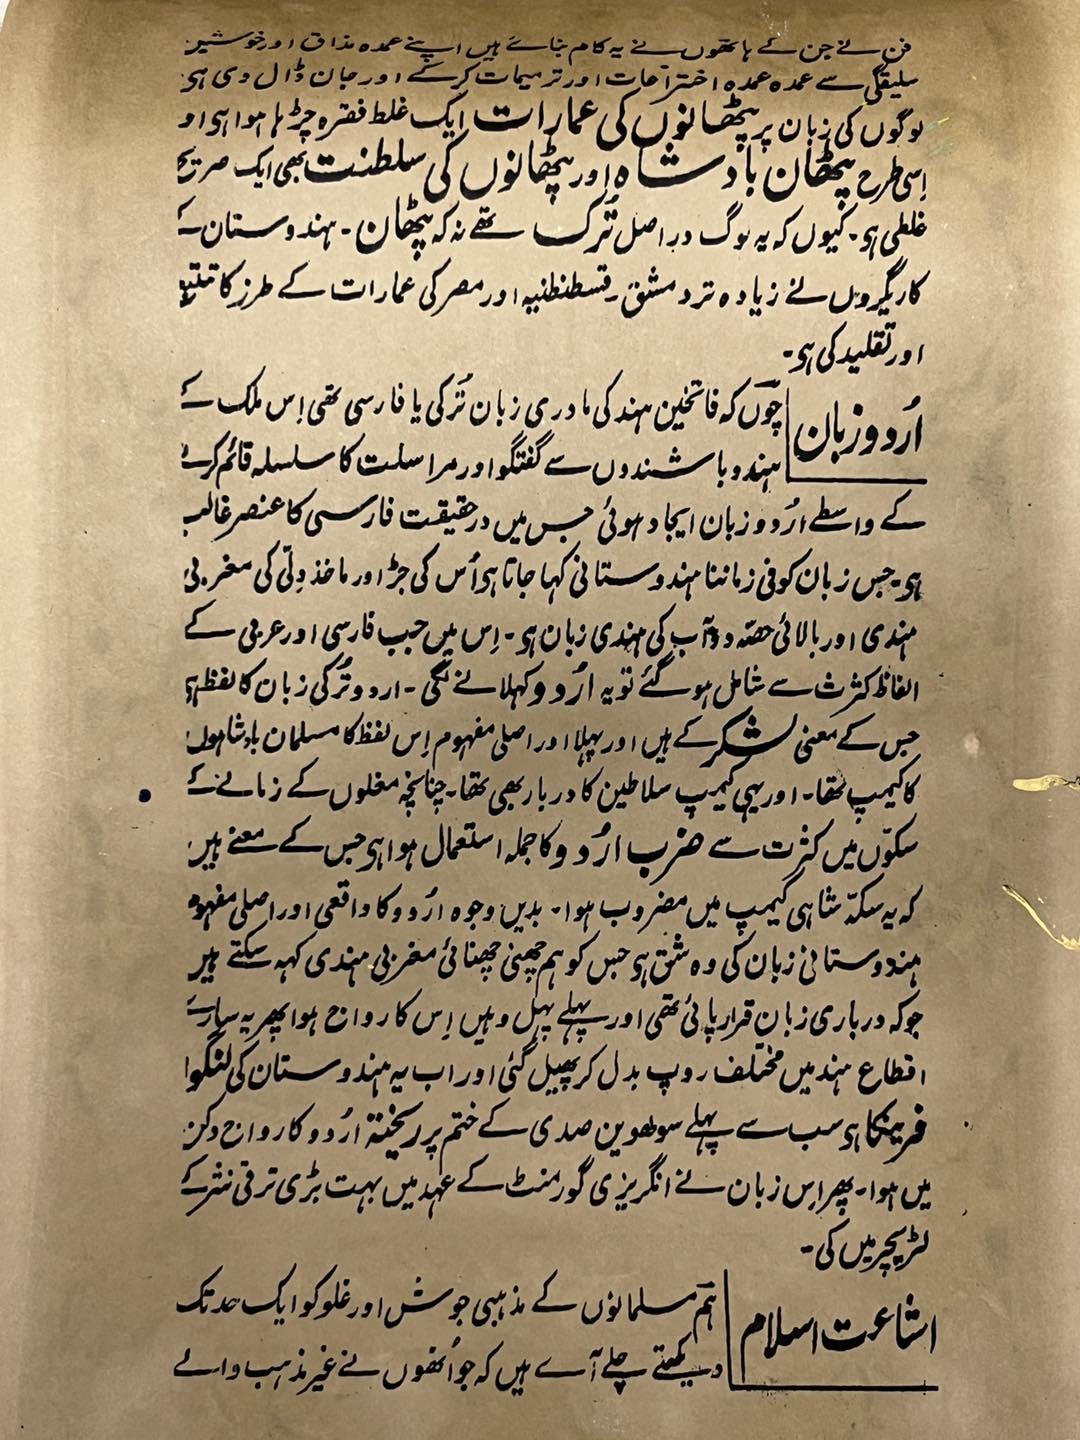 فن نے جن کے ہاتھوں نے یہ کام بنائے ہیں اپنے عمدہ مذاق اور خوش
سلیقگی سے عمدہ عمدہ اختراعات اور ترمیمات کرکے اور جان ڈال دی ہی
لوگوں کی زبان پر پٹھانوں کی عمارات ایک غلط فقرہ چڑہا ہوا ہی او
اِسی طرح پٹھان بادشاہ اور پٹھانوں کی سلطنت بھی ایک صریح
غلطی ہی۔ کیوں کہ یہ لوگ در اصل تُرک تھے نہ کہ پٹھان۔ ہندوستان کے
کاریگروں نے زیادہ تر دمشق۔ قسطنطنیہ اور مصر کی عمارات کے طرز کا تتبع
اور تقلید کی ہی۔
اُردو زبان
چوں کہ فاتحین ہند کی مادری زبان تُرکی یا فارسی تھی اِس ملک کے
ہندو باشندوں سے گفتگو اور مراسلت کا سلسلہ قائم کرنے
کے واسطے اُردو زبان ایجاد ہوئی جس میں درحقیقت فارسی کا عنصر غالب
ہی۔ جس زبان کو فی زماننا ہندوستانی کہا جاتا ہی اُس کی جڑ اور ماخذ دِلّی کی مغربی
ہندی اور بالائی حصّہ دوآب کی ہندی زبان ہی۔ اِس میں جب فارسی اور عربی کے
الفاظ کثرت سے شامل ہو گئے تو یہ اُردو کہلانے لگی۔ اردو تُرکی زبان کا لفظ ہی
جس کے معنی لشکر کے ہیں اور پہلا اور اصلی مفہوم اِس لفظ کا مسلمان بادشاہوں
کا کیمپ تھا۔ اور یہی کیمپ سلاطین کا دربار بھی تھا۔ چنانچہ مغلوں کے زمانے کے
سکّوں میں کثرت سے ضرب اُردو کا جملہ استعمال ہوا ہی جس کے معنے ہیں
کہ یہ سکّہ شاہی کیمپ میں مضروب ہوا۔ بدیں وجوہ اُردو کا واقعی اور اصلی مفہوم
ہندوستانی زبان کی وہ شق ہی جس کو ہم چھنی چھنائی مغربی ہندی کہہ سکتے ہیں
جو کہ درباری زبان قرار پائی تھی اور پہلے پہل وہیں اِس کا رواج ہوا پھر یہ سارے
اقطاع ہند میں مختلف روپ بدل کر پھیل گئی اور اب یہ ہندوستان کی لنگوا
فرینکا ہی سب سے پہلے سولھوین صدی کے ختم پر ریختۂ اُردو کا رواج دکن
میں ہوا۔ پھر اِس زبان نے انگریزی گورمنٹ کے عہد میں بہت بڑی ترقی نثر کے
لٹریچر میں کی۔
اشاعت اسلام
ہم مسلمانوں کے مذہبی جوش اور غلو کو ایک حد تک
دیکھتے چلے آے ہیں کہ جو اُنھوں نے غیر مذہب والے